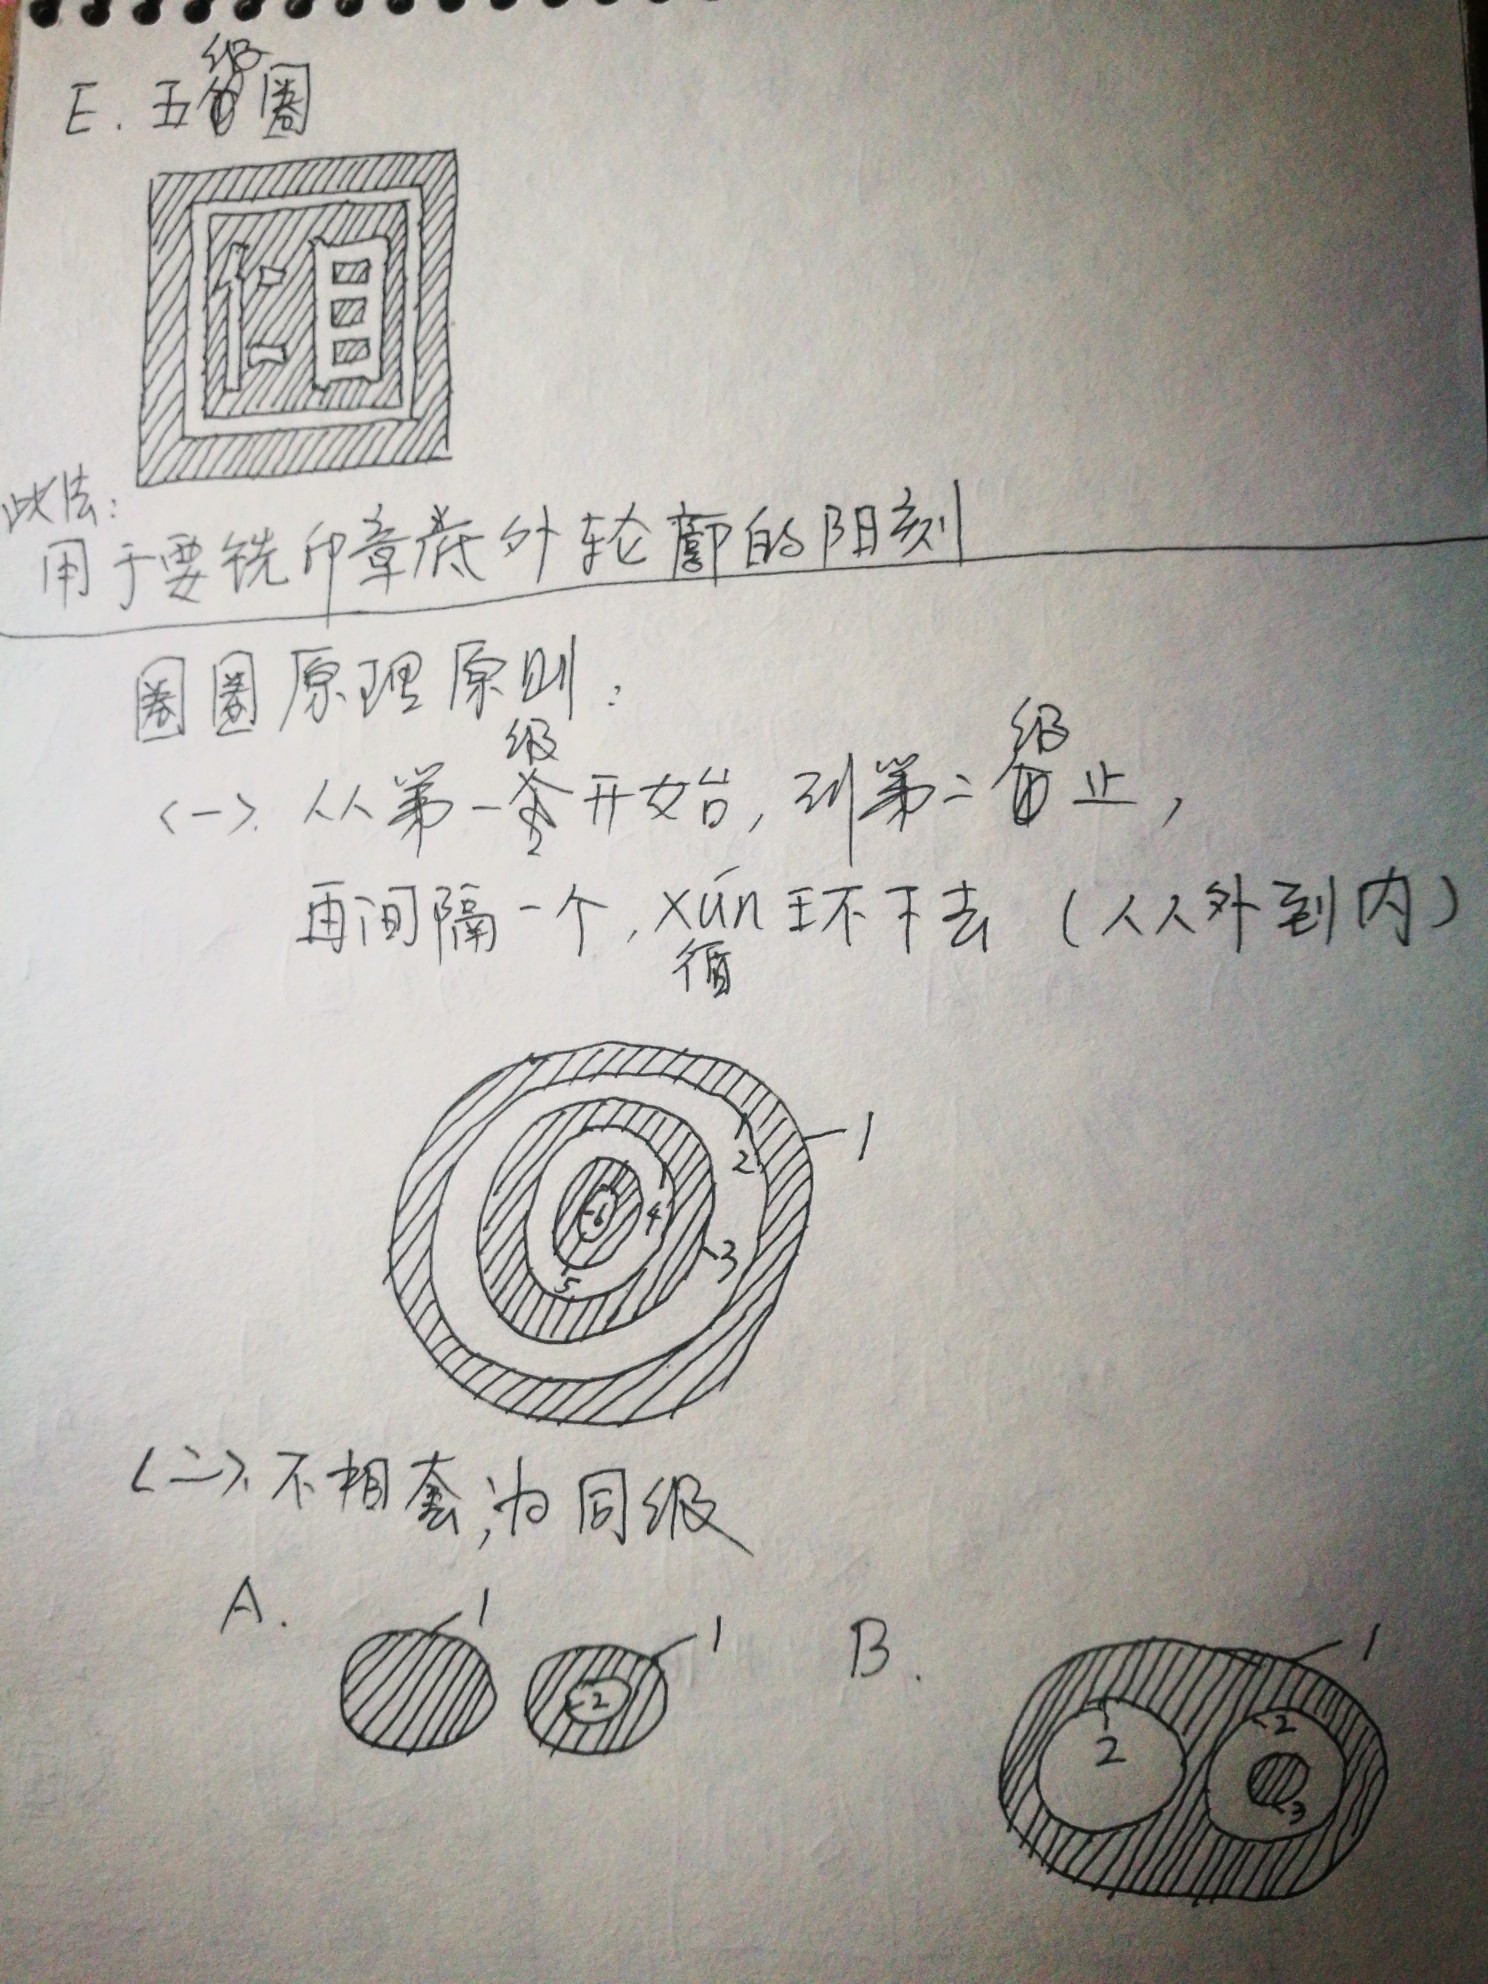 E. 五级圈
仁目
此法:
用于要铣印章底外轮廓的阳刻
圈圈原理原则:
<一>. 从第一级开始, 到第二级止,
再间隔一个, xún环下去 (从外到内)
循
1
2
3
4
5
6
<二>. 不相套, 为同级
A.
1
1
2
B.
1
2
2
3